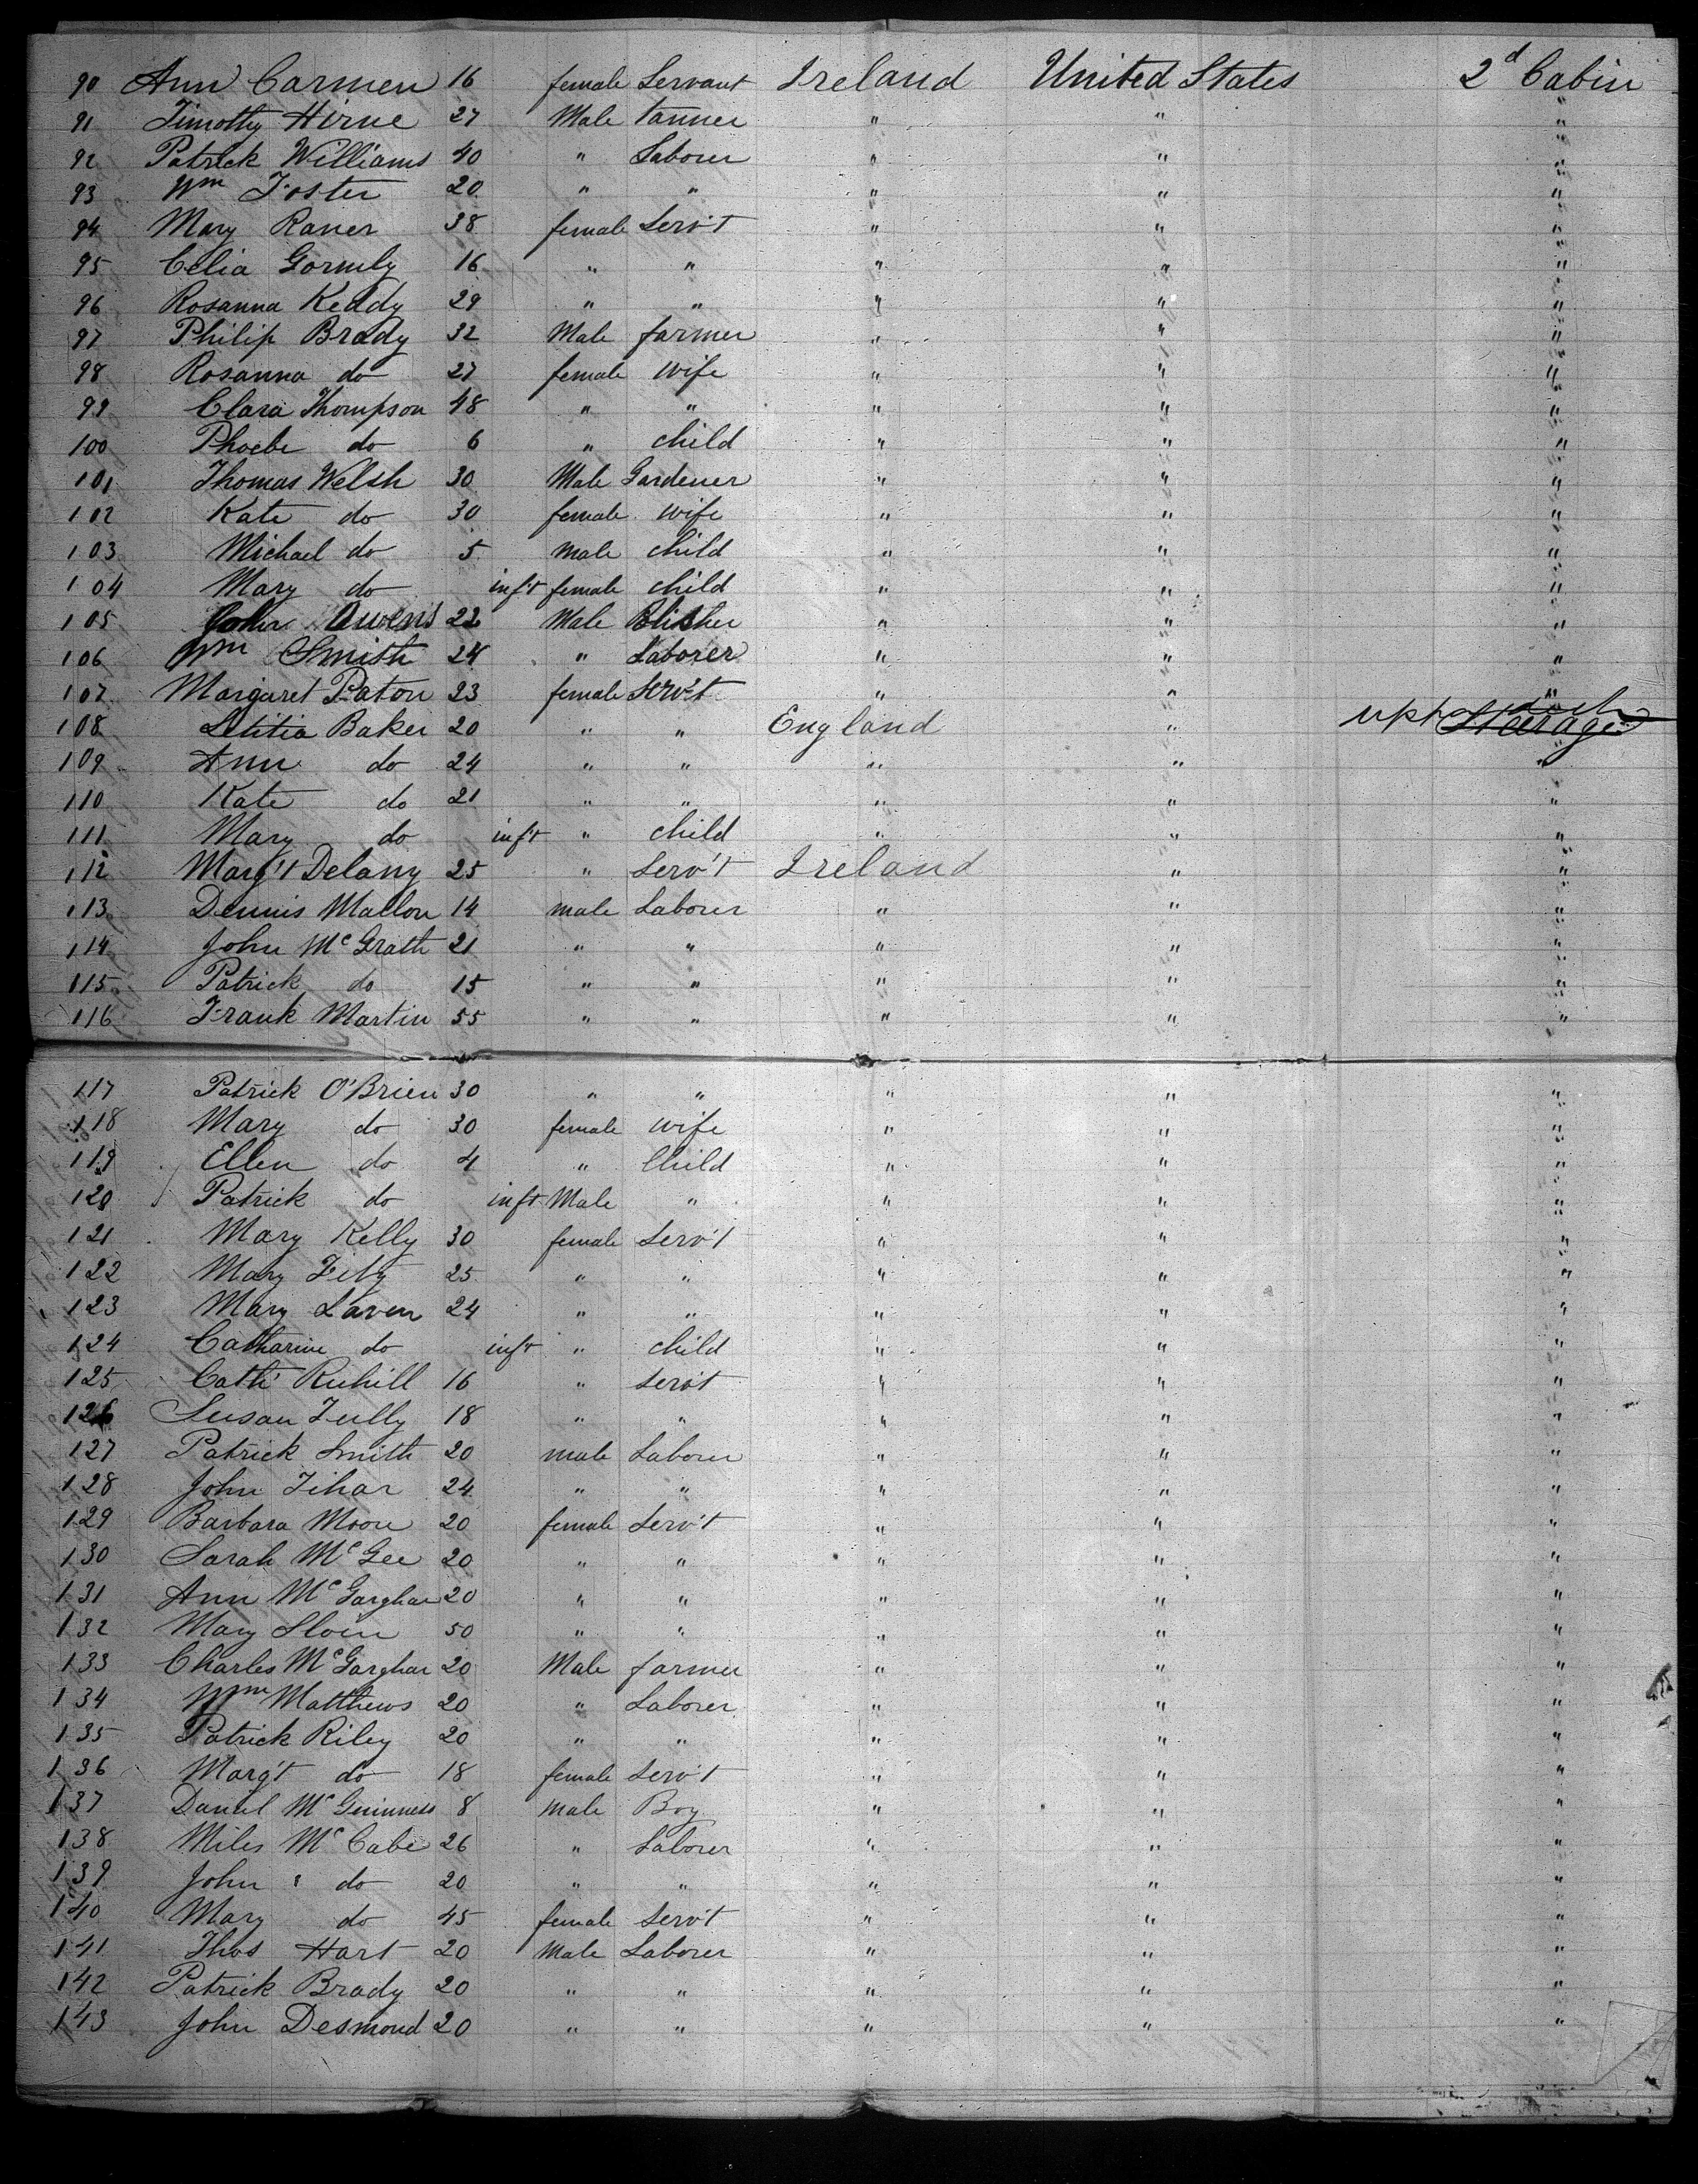 90 Ann Carmen 16 female Servant Ireland United States 2d Cabin
91 Timothy Hirne 27 Male Tanner " " "
92 Patrick Williams 40 " Laborer " " "
93 Wm Foster 20 " " " " "
94 Mary Raner 38 female Serv't " " "
95 Celia Gormly 16 " " " " "
96 Rosanna Keddy 29 " " " " "
97 Philip Brady 32 Male farmer " " "
98 Rosanna do 27 female wife " " "
99 Clara Thompson 48 " " " " "
100 Phoebe do 6 " child " " "
101 Thomas Welsh 30 Male Gardener " " "
102 Kate do 30 female wife " " "
103 Michael do 5 male child " " "
104 Mary do inft female child " " "
105 John Owens 22 Male " " "
106 Wm Smith 24 " Laborer " " "
107 Margaret Paton 23 female Serv't " " "
108 Letitia Baker 20 " " England " Steerage
109 Ann do 24 " " " " "
110 Kate do 21 " " " " "
111 Mary do inft " child " " "
112 Marg't Delany 25 " Serv't Ireland " "
113 Dennis Mallon 14 male Laborer " " "
114 John McGrath 21 " " " " "
115 Patrick do 15 " " " " "
116 Frank Martin 55 " " " " "
117 Patrick O'Brien 30 " " " " "
118 Mary do 30 female wife " " "
119 Ellen do 4 " Child " " "
120 Patrick do inft Male " " " "
121 Mary Kelly 30 female Serv't " " "
122 Mary 25 " " " " "
123 Mary Laven 24 " " " " "
124 Catharine do inft " child " " "
125 Cath' Ruhill 16 " Serv't " " "
126 Susan Tully 18 " " " " "
127 Patrick Smith 20 male Laborer " " "
128 John 24 " " " " "
129 Barbara Moore 20 female Serv't " " "
130 Sarah McGee 20 " " " " "
131 Ann McGarghan 20 " " " " "
132 Mary Sloin 50 " " " " "
133 Charles McGarghan 20 Male farmer " " "
134 Wm Matthews 20 " Laborer " " "
135 Patrick Riley 20 " " " " "
136 Marg't do 18 female Serv't " " "
137 Daniel McGuinness 8 male Boy " " "
138 Miles McCabe 26 " Laborer " " "
139 John do 20 " " " " "
140 Mary do 45 female Serv't " " "
141 Thos Hart 20 Male Laborer " " "
142 Patrick Brady 20 " " " " "
143 John Desmond 20 " " " " "